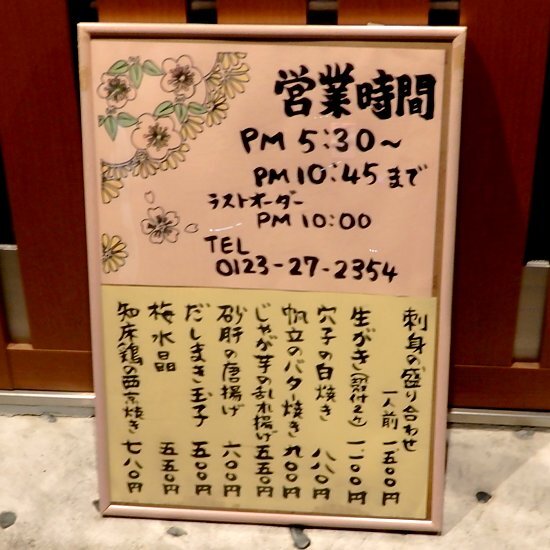 営業時間
PM 5:30〜
PM 10:45まで
ラストオーダー
PM 10:00
TEL
0123-27-2354
刺身の盛り合わせ
一人前 一、五〇〇円
生がき(殻付2ヶ) 一、一〇〇円
穴子の白焼き 八八〇円
帆立のバター焼き 九〇〇円
じゃが芋の乱れ揚げ 五五〇円
砂肝の唐揚げ 六〇〇円
だしまき玉子 五五〇円
梅水晶 五五〇円
知床鶏の西京焼き 七八〇円